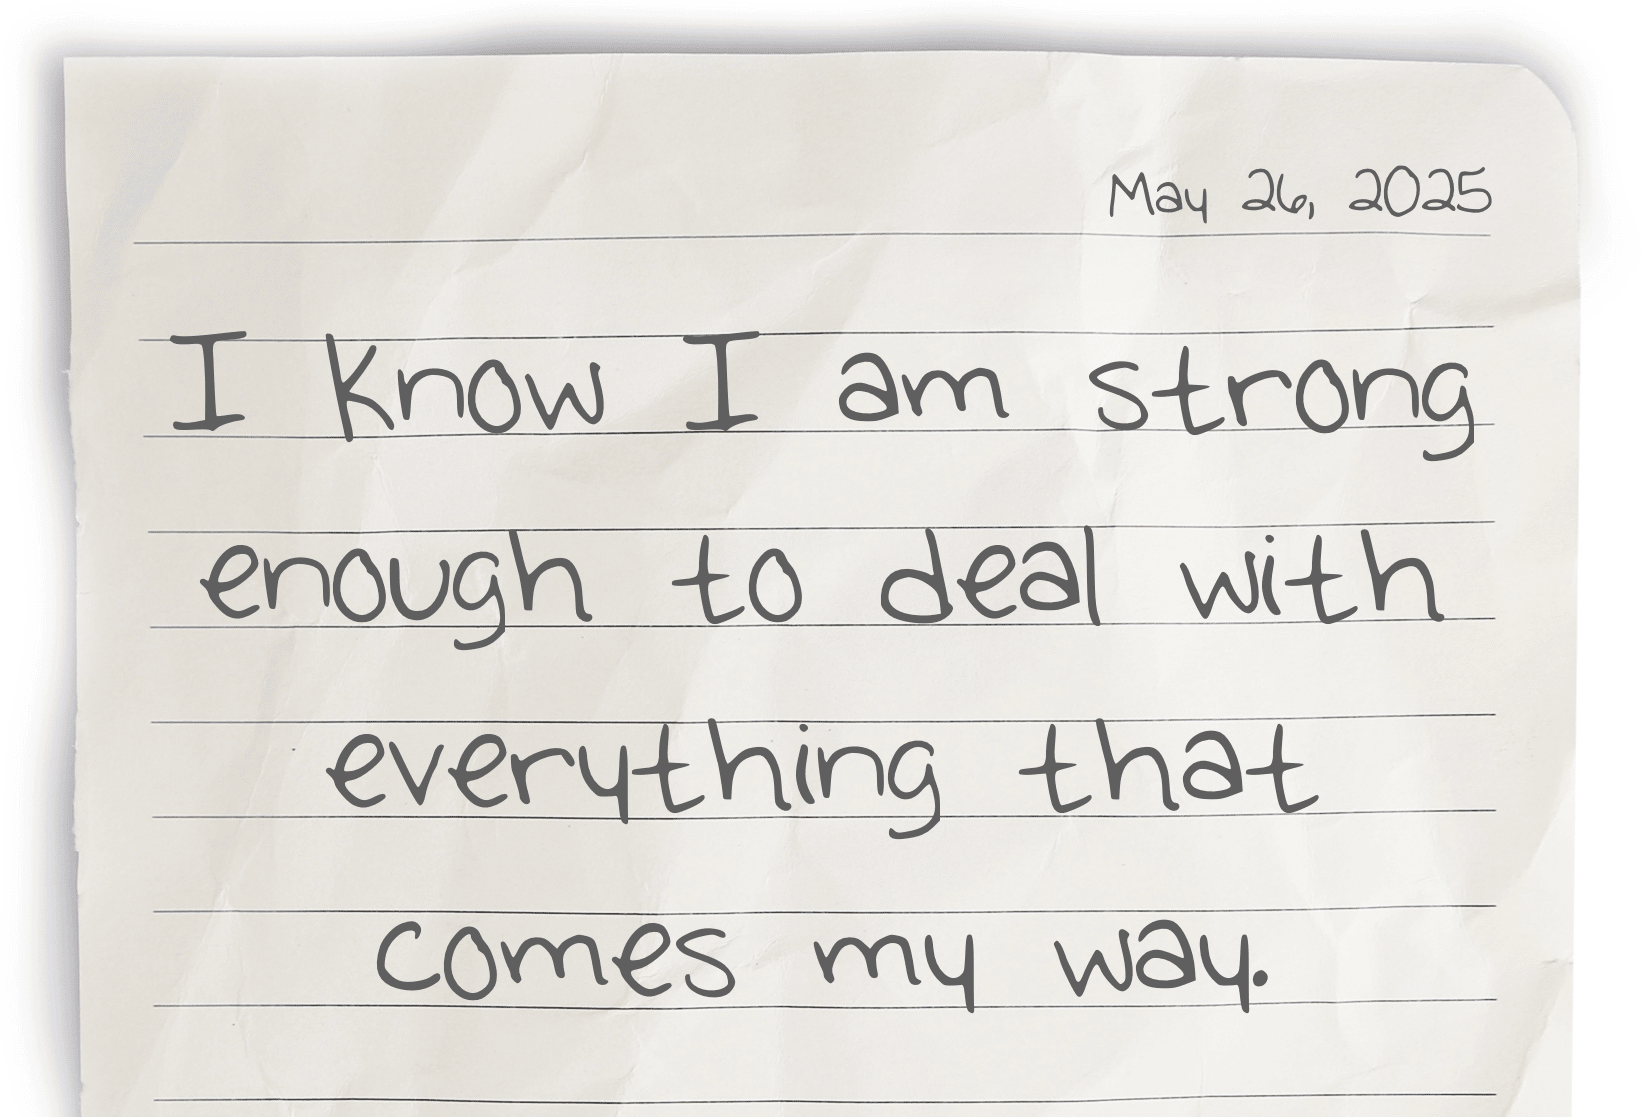 May 26, 2025
I know I am strong
enough to deal with
everything that
comes my way.